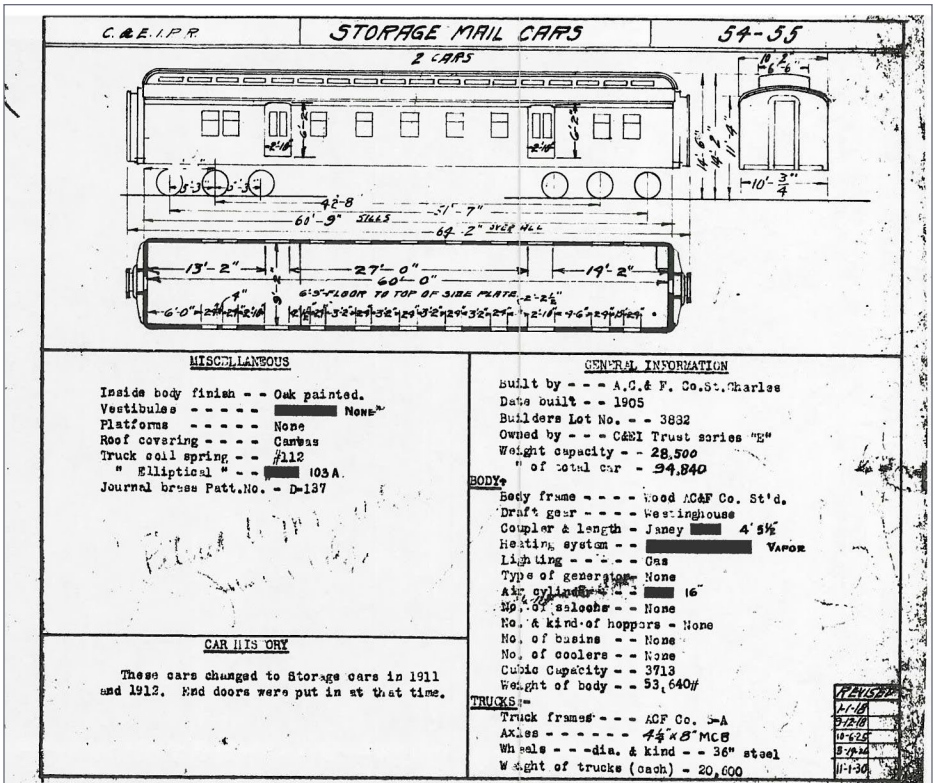 C. & E. I. P. R
STORAGE MAIL CARS
54-55
2 CARS
10'-2"
6'-6"
6'-2"
6'-2"
2'-10"
2'-10"
14'-6"
14'-2"
11'-4"
10'-3/4"
5'-3"
5'-3"
42-8
51'-7"
60'-9" SILLS
64'-2" OVER ALL
13'-2"
27'-0"
14'-2"
60'-0"
9'-2"
6'-5" FLOOR TO TOP OF SIDE PLATE
2'-2½"
4"
6'-0"
MISCELLANEOUS
Inside body finish - - Oak painted.
Vestibules - - - - - NONE
Platforms - - - - - None
Roof covering - - - - Canvas
Truck coil spring - - #112
" Elliptical " - - 103A.
Journal brass Patt.No. - D-137
CAR HISTORY
These cars changed to Storage cars in 1911
and 1912. End doors were put in at that time.
GENERAL INFORMATION
Built by - - - A.C.& F. Co.St.Charles
Date built - - 1905
Builders Lot No. - - 3832
Owned by - - - C&EI Trust series "E"
Weight capacity - - 28,500
" of total car - 94,840
BODY:
Body frame - - - - Wood AC&F Co. St'd.
Draft gear - - - - Westinghouse
Coupler & length - Janey 4' 5½"
Heating system - - VAPOR
Lighting - - - - - Gas
Type of generator- None
Air cylinder - - - 16"
No. of saloons - - None
No. & kind of hoppers - None
No. of basins - - None
No. of coolers - - None
Cubic Capacity - - 3713
Weight of body - - 53,640#
TRUCKS:-
Truck frames - - - ACF Co. S-A
Axles - - - - - - 4¼" x 8" MCB
Wheels - - -dia. & kind - - 36" steel
Weight of trucks (each) - 20,600
REVISED
1-1-18
9-12-18
10-6-25
11-1-30